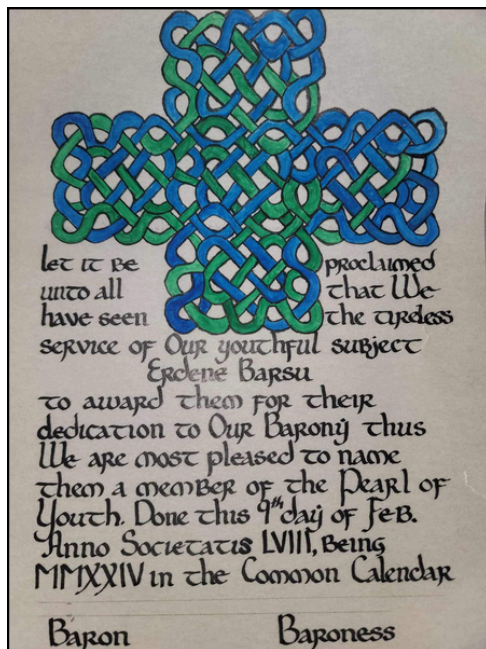 let it be proclaimed
unto all that We
have seen the tireless
service of Our youthful subject
Erdene Barsu
to award them for their
dedication to Our Barony thus
We are most pleased to name
them a member of the Pearl of
Youth. Done this 9th day of Feb.
Anno Societatis LVIII, Being
MMXXIV in the Common Calendar
Baron Baroness